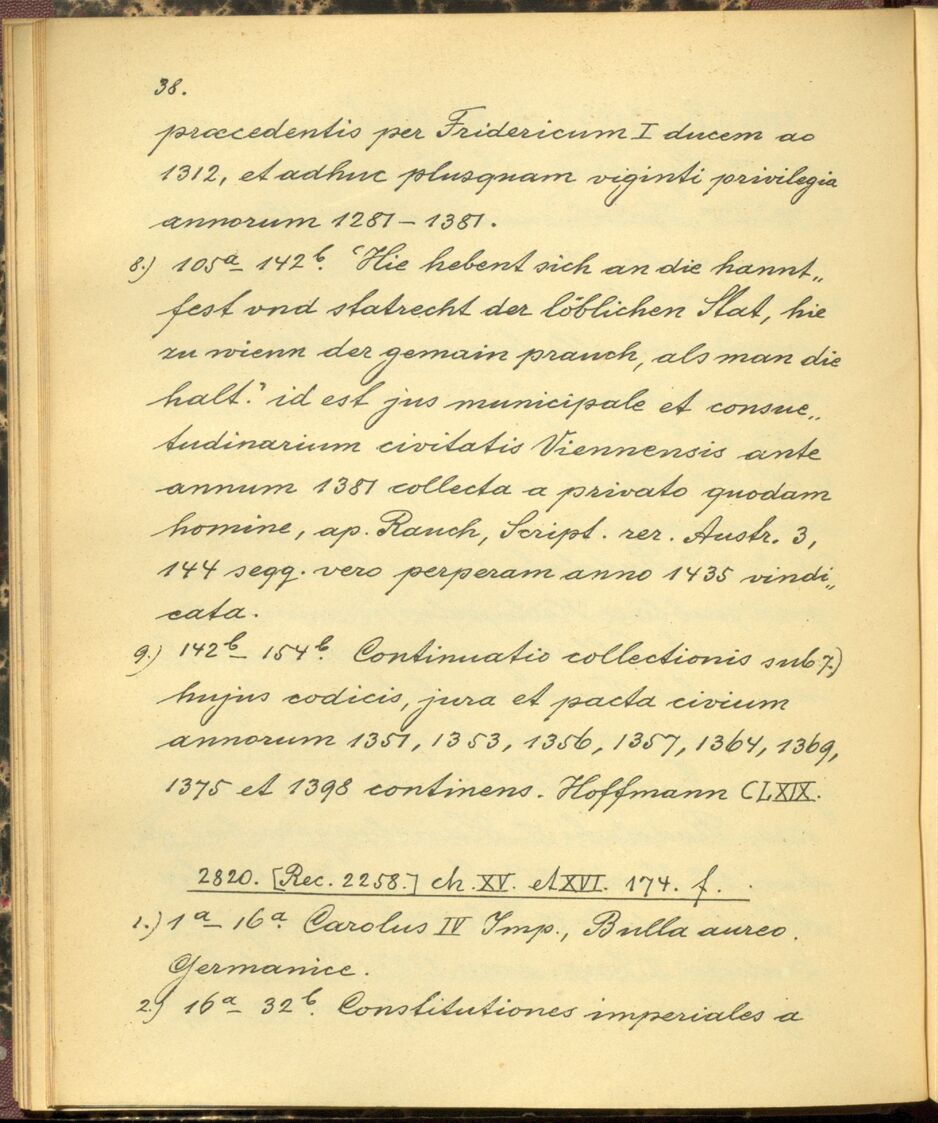 38.
præcedentis per Fridericum I ducem ao
1312, et adhuc plusquam viginti privilegia
annorum 1281 – 1381.
8.) 105a – 142b. "Hie hebent sich an die hannt„
fest vnd statrecht der löblichen Stat, hie
zu wienn der gemain prauch, als man die
halt." id est jus municipale et consue„
tudinarium civitatis Viennensis ante
annum 1381 collecta a privato quodam
homine, ap. Rauch, Script. rer. Austr. 3,
144 segg. vero perperam anno 1435 vindi„
cata.
9.) 142b – 154b. Continuatio collectionis sub 7.)
hujus codicis, jura et pacta civium
annorum 1351, 1353, 1356, 1357, 1364, 1369,
1375 et 1398 continens. Hoffmann CLXIX.
2820. [Rec. 2258.] ch. XV. et XVI. 174. f.
1.) 1a – 16a. Carolus IV Imp., Bulla aurea.
Germanice.
2.) 16a – 32b. Constitutiones imperiales a